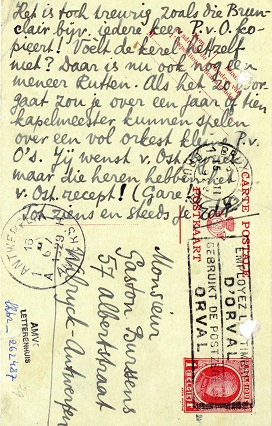 Het is toch treurig zoals die Brun-
clair bijv. iedere keer P.v.O. ko-
pieert! Voelt de kerel hetzelf
niet? Daar is nu ook nog een
meneer Rutten. Als het zo voor
gaat zou je over een jaar of tien
kapelmeester kunnen spelen
over een vol orkest kleine P.v.
O's. Jij wenst v. Ost
maar die heren hebben het
v. Ost. recept! (Gare
Tot ziens en steeds je
CARTE POSTALE
POSTKAART
Monsieur
Gaston Burssens
57 albertstraat
Antwerpen
EMPLOYEZ LE TIMBRE
D'ORVAL
GEBRUIKT DE POSTZEGEL
ORVAL
ANTWERPEN
AMVC
LETTERENHUIS
262487
BELGIQUE